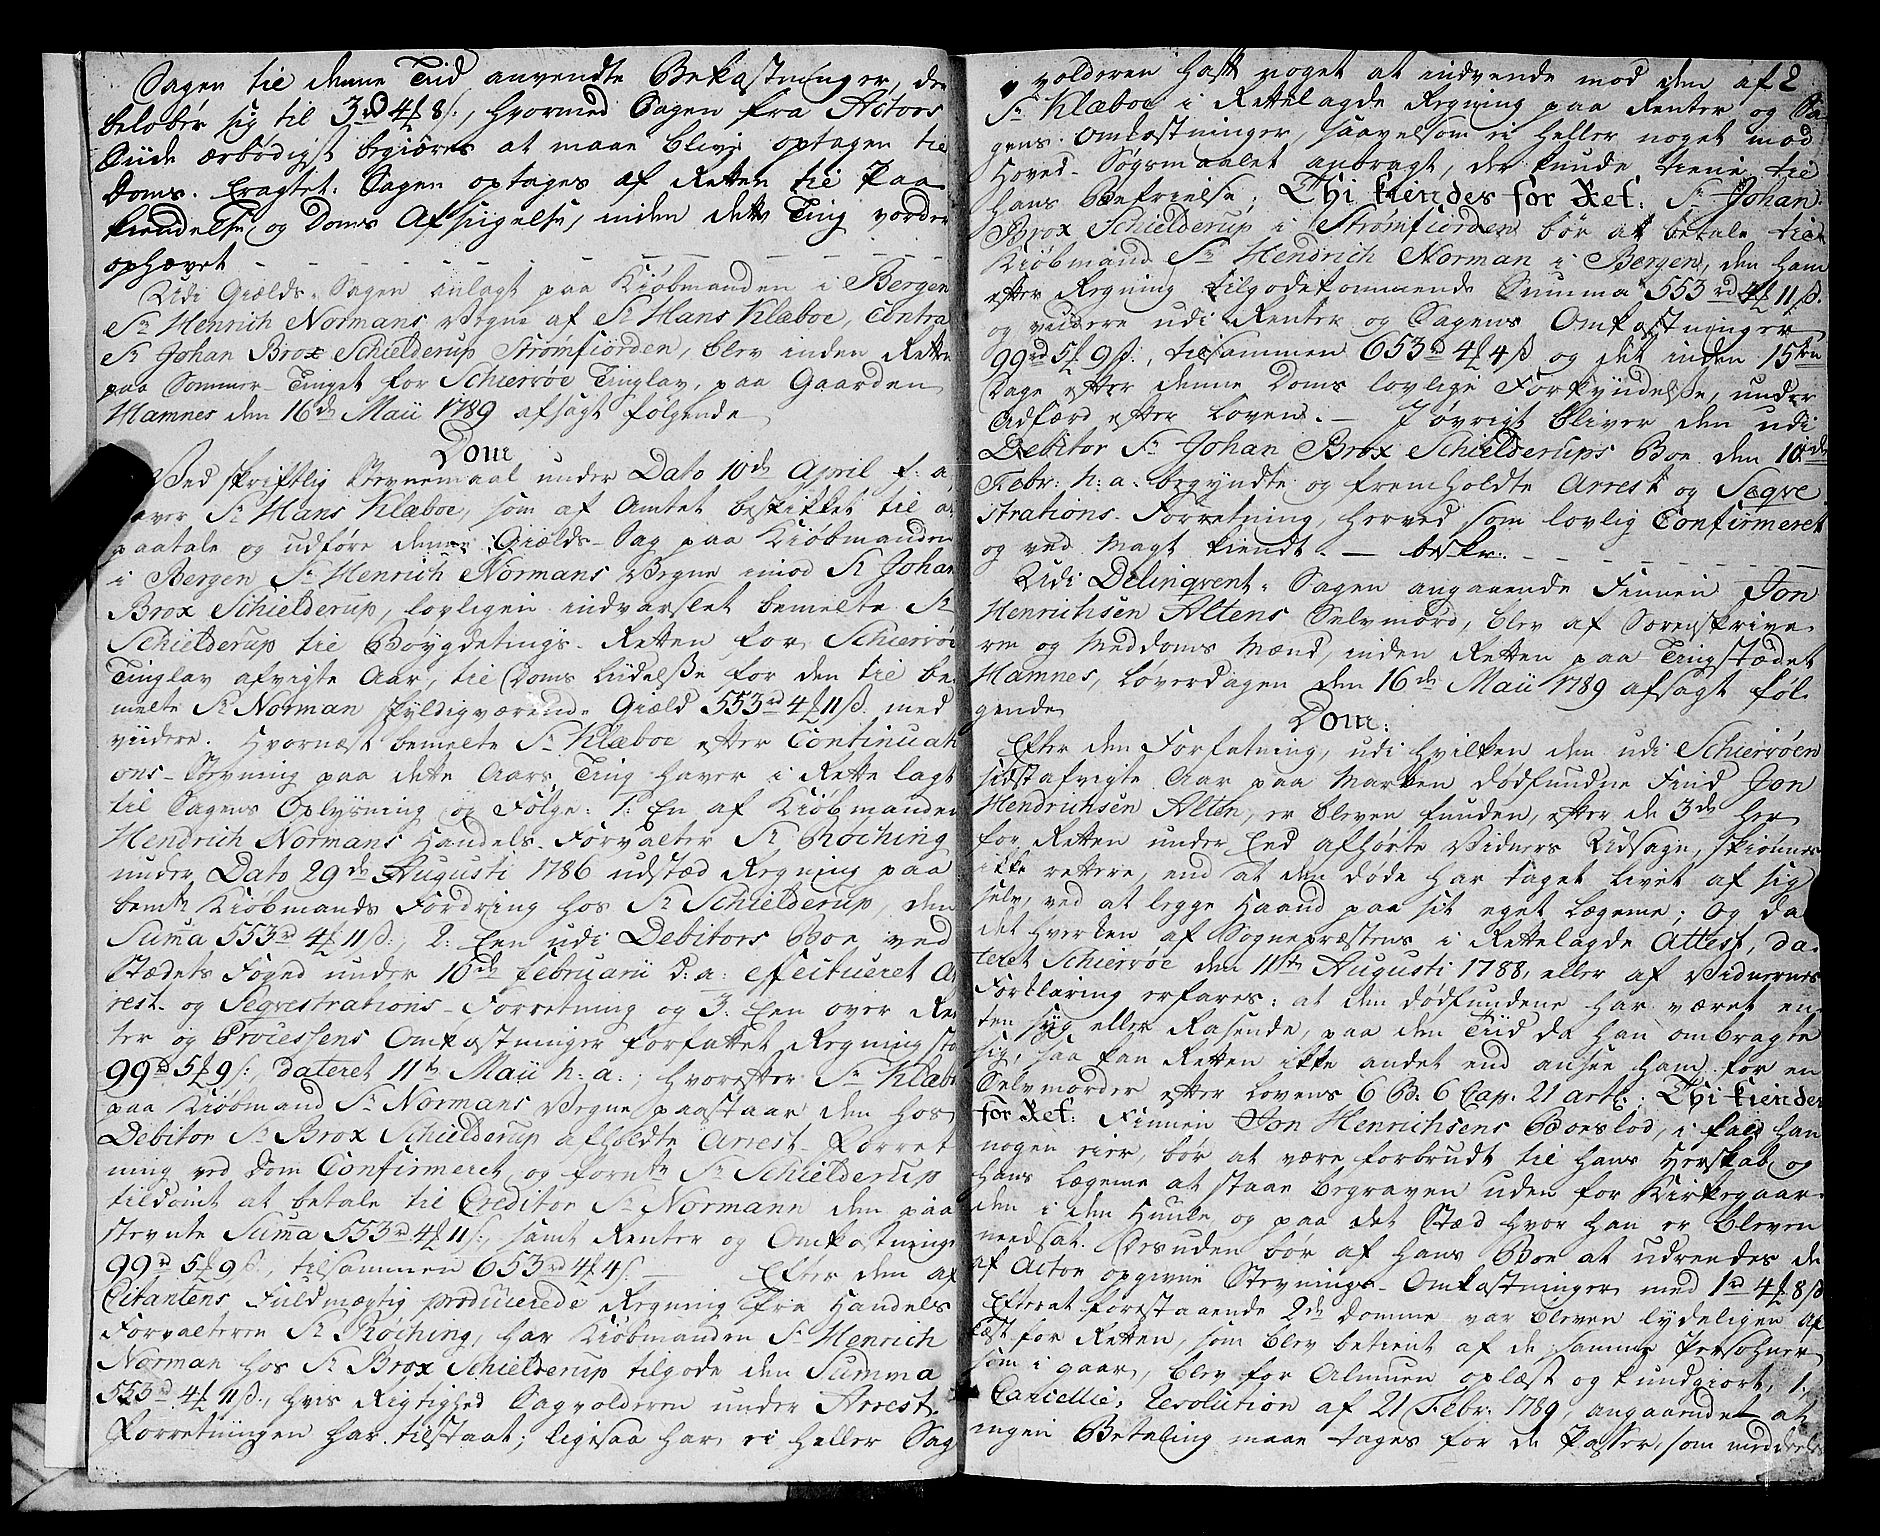 Sagen til denne Tiid anvendte Bekostninger, der
beløber sig til 3rd 4 8 s:, hvormed Sagen fra Actors
Siide ærbødigst begiæres at maae blive optagen til
Doms. Eragtet: Sagen optages af Retten til Paa-
kiendelse og Doms Afsigelse, inden dette Ting vorder
ophævet
Udi Giælds-Sagen anlagt paa Kiøbmanden i Bergen
Sr Henrich Normans Vegne af Sr Hans Klæboe, contra
Sr Johan Brox Schielderup Strømfiorden, blev inden Rette
paa Sommer-Tinget for Schiervøe Tinglav, paa Gaarden
Hamnes den 16de Maii 1789 afsagt følgende
Dom
Ved skriftlig Stevnemaal under Dato 10de April f: a:
haver Sr Hans Klæboe, som af Amtet beskikket til at
paatale og udføre denne Giælds-Sag paa Kiøbmanden
i Bergen Sr Henrich Normans Vegne imod Sr Johan
Brox Schielderup, lovligen indvarslet bemelte Sr
Schielderup til Boygdetings-Retten for Schiervøe
Tinglav afvigte Aar, til Doms Liidelsse for den til be-
melte Sr Norman skyldigværende Giæld 553rd 4 11 ß. med
viidere. Hvornæst bemelte Sr Klæboe efter Continuati-
ons-Stevning paa dette Aars Ting haver i Rette lagt
til Sagens Oplysning og Følge: 1. En af Kiøbmanden
Hendrich Normans Handels-Forvalter Sr Røching
under Dato 29de Augusti 1786 udstæd Regning paa
bemte Kiøbmands Fordring hos Sr Schielderup, den
Suma 553rd 4 11 ß:, 2: Een udi Debitors Boe ved
Stædets Foged under 10de Februarii d: a: efectueret Ar-
rest- og Seqvestrations-Forretning og 3. Een over Ren-
ter og Processens Omkostninger forfattet Regning stor
99rd 5 9 s:, dateret 11te Maii h: a:, hvorefter Sr Klæboe
paa Kiøbmand Sr Normans Vegne paastaar den hos
Debitor Sr Brox Schielderup afholdte Arrest-Forret-
ning ved Dom Confirmeret, og fornte Sr Schielderup
tildømt at betale til Creditor Sr Normann den paa-
stevnte Suma 553rd 4 11 s:, samt Renter og Omkostninger
99rd 5 9 ß., tilsammen 653rd 4 4 s: — Efter den af
Citantens Fuldmægtig producerede Regning fra Handels
Forvalteren Sr Røching, har Kiøbmanden Sr Henrich
Norman hos Sr Brox Schielderup tilgode den Summa
553rd 4 11 ß., hvis Rigtighed Sagvolderen under Arrest-
Forretningen har tilstaaet; ligesaa har ei heller Sag-
volderen hafft noget at indvende mod den af
Sr Klæboe i Rettelagde Regning paa Renter og Sa-
gens Omkostninger, saavelsom ei heller noget mod
Hoved-Søgsmaalet anbragt, der kunde tiene til
Hans Befrielse; Thi kiendes for Ret: Sr Johan
Brox Schielderup i Strømfiorden bør at betale til
Kiøbmand Sr Hendrich Norman i Bergen, den ham
efter Regning tilgodekommende Summa 553rd 4 11 ß.
og viidere udi Renter og Sagens Omkostninger
99rd 5 9 ß., tilsammen 653rd 4 4 ß og det inden 15ten
Dage efter denne Doms lovlige Forkyndelsse, under
Adfærd efter Loven. — I øvrigt bliver den udi
Debitor Sr Johan Brox Schielderups Boe den 10de
Febr: h: a: begyndte og fremholdte Arrest og Seqve-
strations-Forretning, herved som lovlig Confirmeret
og ved Magt kiendt. — beskr:
Udi Delinqvent-Sagen angaaende Finnen Jon
Henrichsen Altens Selvmord, blev af Sorenskrive-
ren og Meddoms Mænd, inden Retten paa Tingstædet
Hamnes, Løverdagen den 16de Maii 1789 afsagt føl-
gende
Dom:
Efter den Forfatning, udi hvilken den udi Schiervøen
sidstafvigte Aar paa Marken dødfundne Find Jon
Hendrichsen Alten, er bleven funden, efter de 3de her
for Retten under Eed afhørte Vidners Udsagn, skiønnes
ikke rettere, end at den døde har taget Livet af sig
selv, ved at legge Haand paa sit eget Legeme; Og da
det hverken af Sognepræstens i Rettelagde Attest, da-
teret Schiervøe den 11te Augusti 1788, eller af Vidnernes
Forklaring erfares: at den dødfundene har været en-
ten syg eller Rasende, paa den Tiid da han ombragte
sig, saa kan Retten ikke andet end ansee ham for en
Selvmorder efter Lovens 6 B: 6 Cap: 21 artl: Thi kiendes
for Ret: Finnen Jon Henrichsens Boeslod, i fald han
nogen eier, bør at være forbrudt til hans Herskab, og
hans Legeme at staae begraven uden for Kirkegaar-
den i den Huule, og paa det Stæd hvor han er bleven
neds​at. Desuden bør af hans Boe at udredes de
af Actor opgivne Stevnings-Omkostninger med 1rd 4 8 ß
Efterat forestaaende 2de Domme var bleven lydeligen af-
læst for Retten, som blev betient af de samme Persohner
som i gaar, blev for Almuen oplæst og kundgiort, 1:
Cancellie; Resolution af 21 Febr: 1789, angaaende at
ingen Betaling maae tages for de Passer, som meddeeles